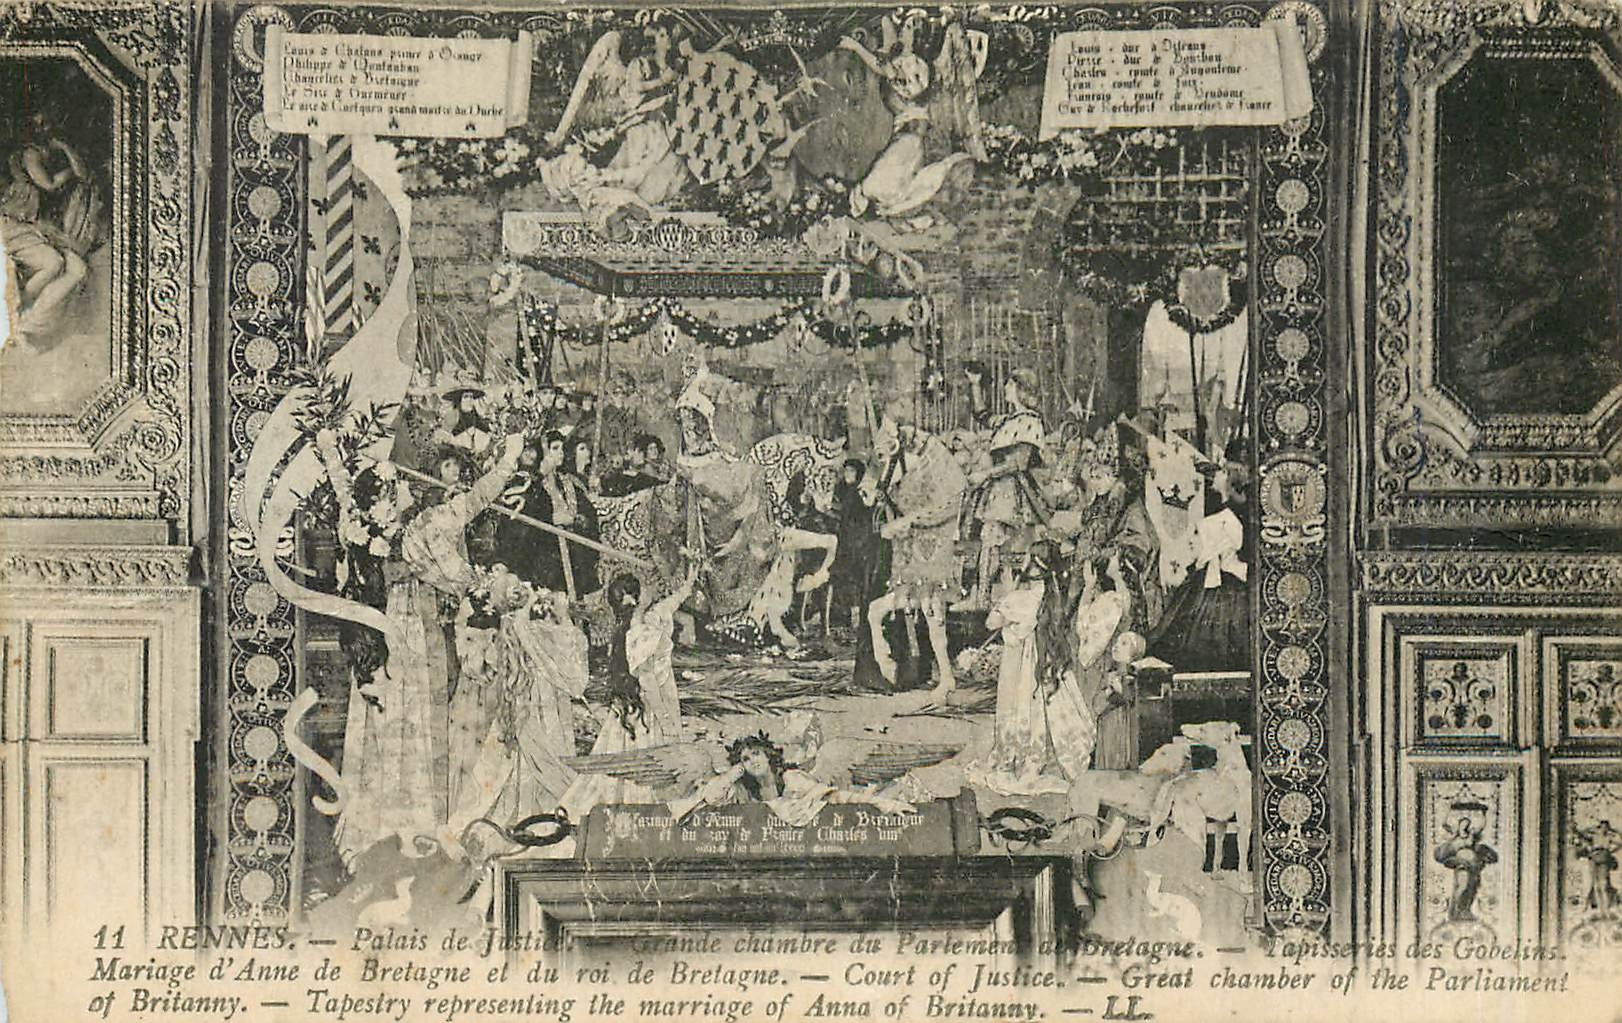 Louis d Chalons prince d'Orange
Philippe d Montauban
Chancelier d Bretaigne
Le Sire d
Le sire d Guesquen grand maitre du Duché
Louis · duc d Orleans
Pierre · duc d Bourbon
Charles · comte d'Angouleme
Jean · comte d Foix
Francois · comte d Vendome
Guy d Rochefort · chancelier d France
Mariage d'Anne duchesse d Bretaigne
et du roy d France Charles VIII
11 RENNES. — Palais de Justice. — Grande chambre du Parlement de Bretagne. — Tapisseries des Gobelins.
Mariage d'Anne de Bretagne et du roi de Bretagne. — Court of Justice. — Great chamber of the Parliament
of Britanny. — Tapestry representing the marriage of Anna of Britanny. — LL.